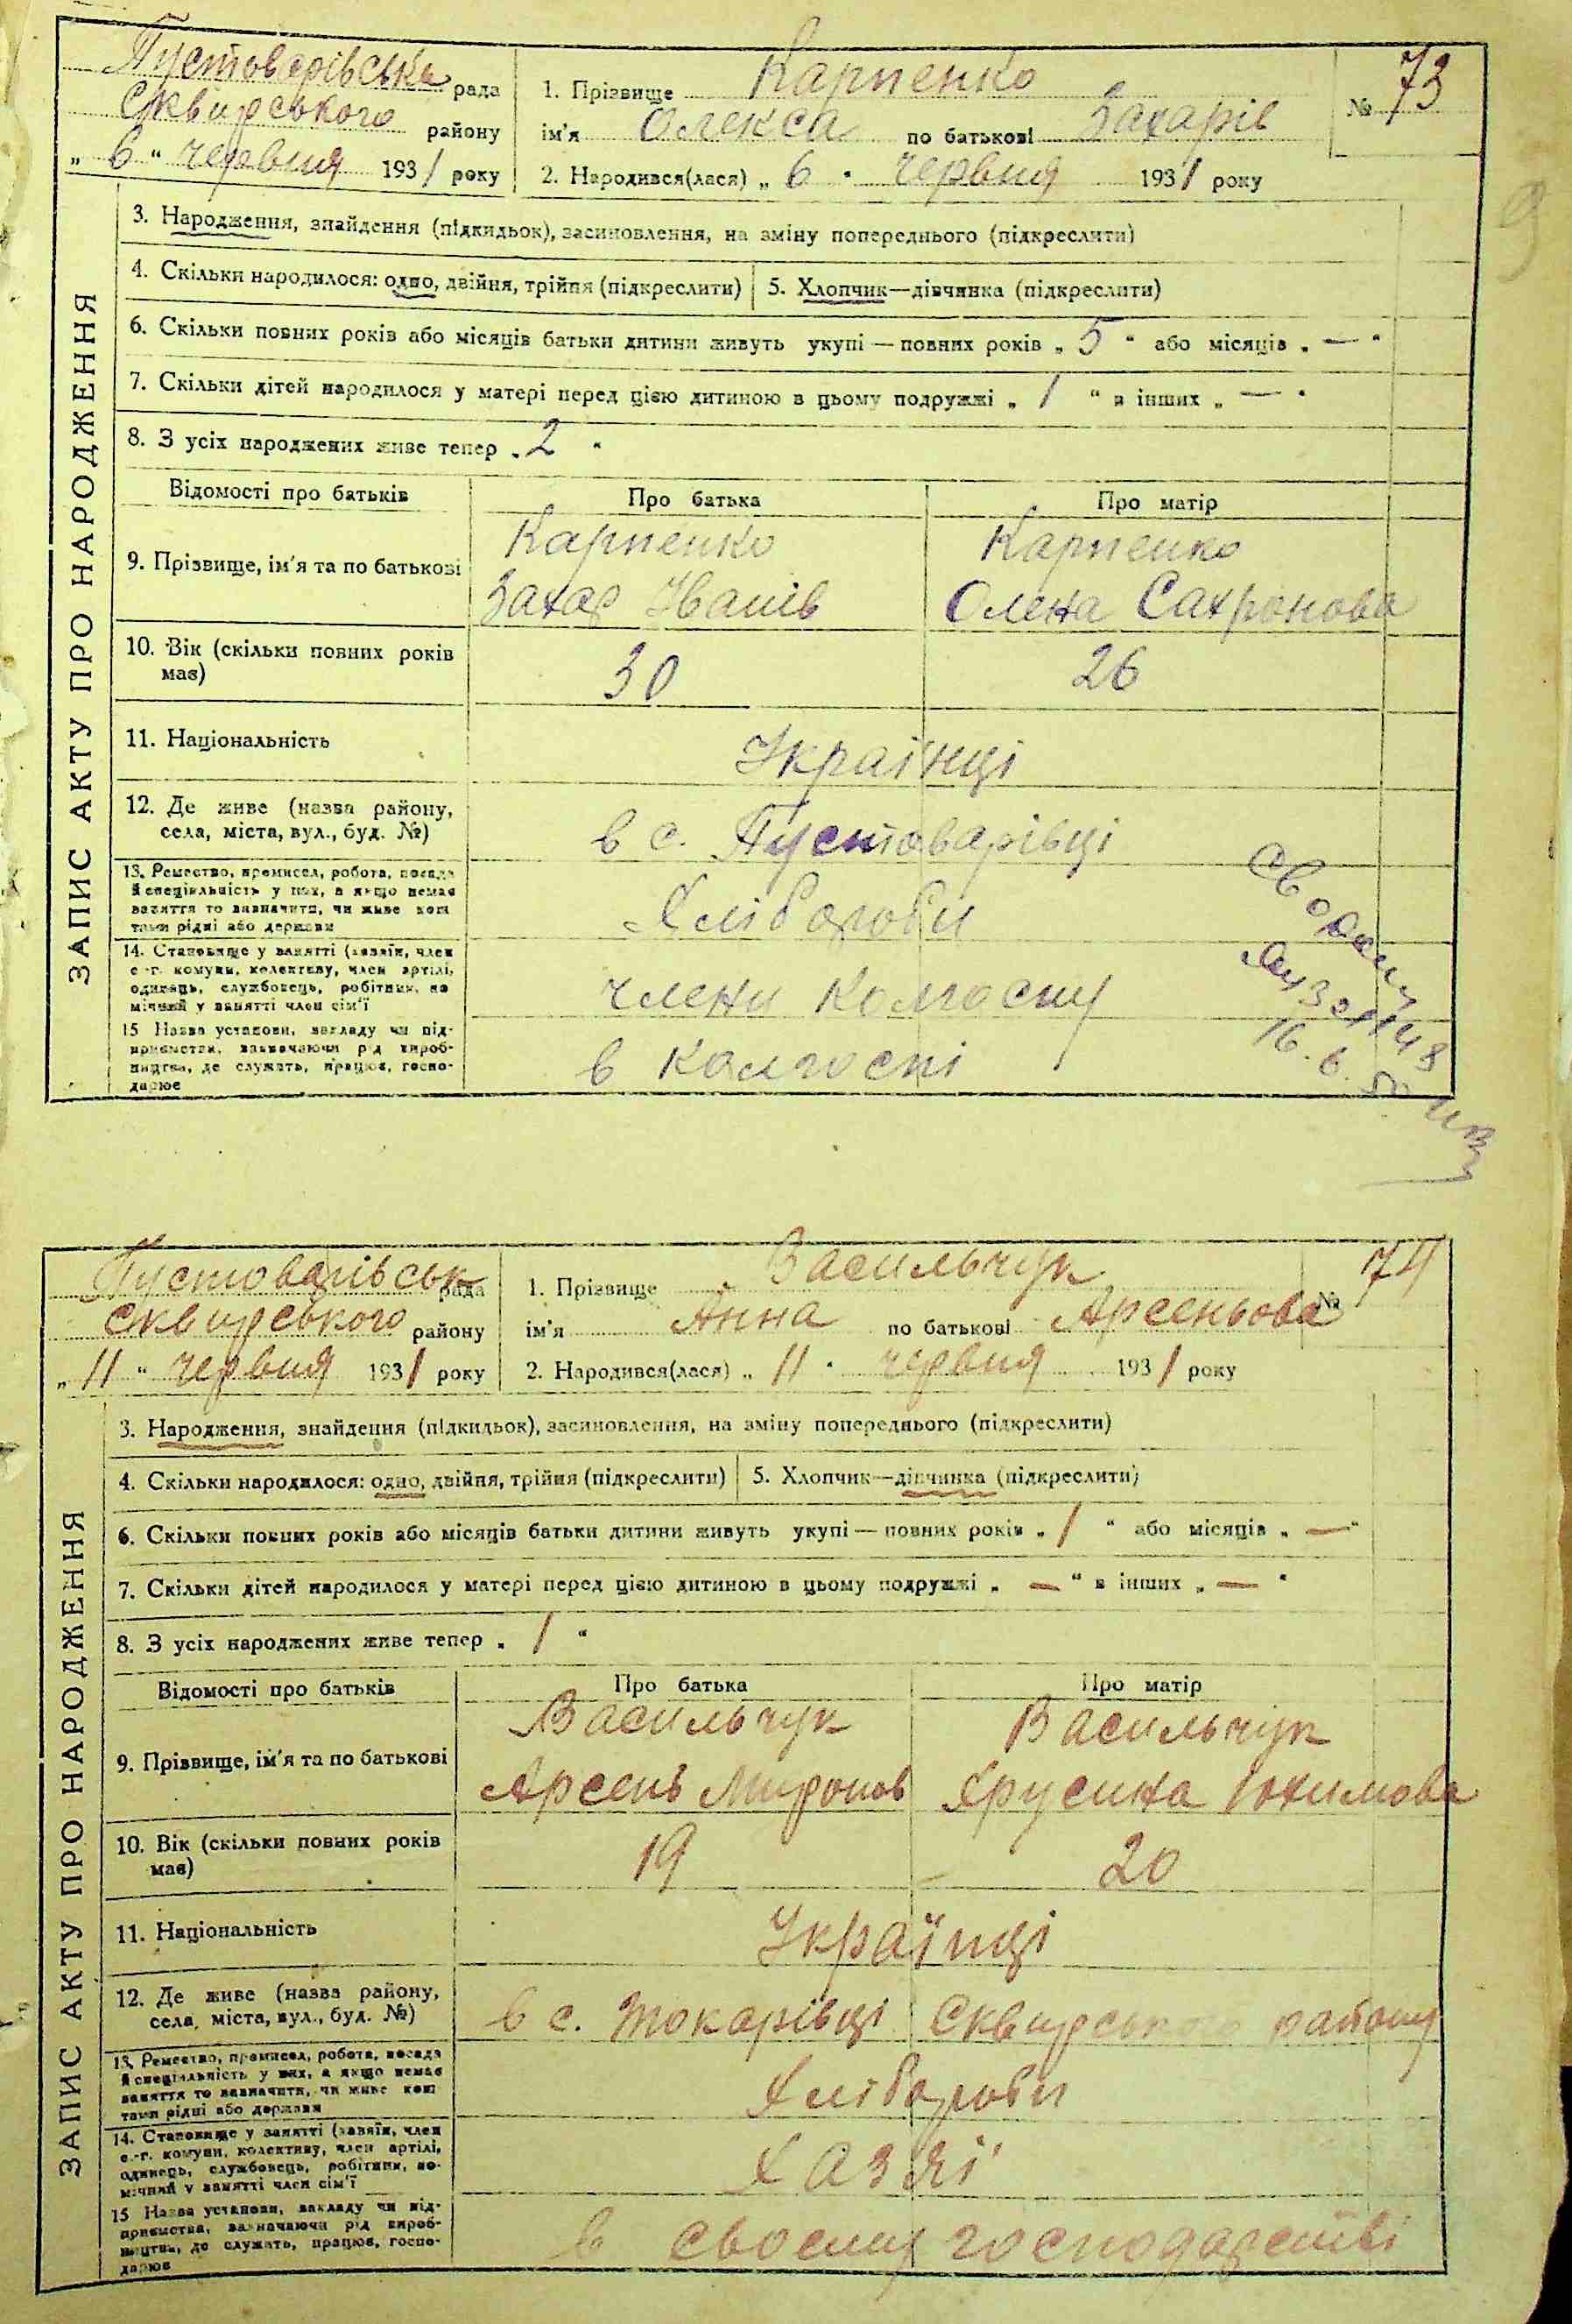 Пустоварівська рада
Сквирського району
„ 6 “ червня 1931 року
1. Прізвище Карпенко
ім'я Олекса по батькові Захарів
№ 73
2. Народився(лася) „ 6 “ червня 1931 року
9
ЗАПИС АКТУ ПРО НАРОДЖЕННЯ
3. Народження, знайдення (підкидьок), засиновлення, на зміну попереднього (підкреслити)
4. Скільки народилося: одно, двійня, трійня (підкреслити)
5. Хлопчик—дівчинка (підкреслити)
6. Скільки повних років або місяців батьки дитини живуть укупі — повних років „ 5 “ або місяців „ — “
7. Скільки дітей народилося у матері перед цією дитиною в цьому подружжі „ 1 “ в інших „ — “
8. З усіх народжених живе тепер „ 2 “
Відомості про батьків
Про батька
Про матір
9. Прізвище, ім'я та по батькові
Карпенко
Захар Іванів
Карпенко
Олена Сахронова
10. Вік (скільки повних років
має)
30
26
11. Національність
Українці
12. Де живе (назва району,
села, міста, вул., буд. №)
в с. Пустоварівці
13. Ремество, промисел, робота, посада
й спеціяльність у них, а якщо немає
заняття то зазначити, чи живе кош
тами рідні або держави
Хлібороби
14. Становище у занятті (хазяїн, член
с.-г. комуни, колективу, член артілі,
одинець, службовець, робітник, по-
мічний у занятті член сім'ї
члени колгоспу
15 Назва установи, закладу чи під-
приємства, зазначаючи рід вироб-
ництва, де служить, працює, госпо-
дарює
в колгоспі
16. 6. 50
Пустоварівськ рада
Сквирського району
„ 11 “ червня 1931 року
1. Прізвище Васильчук
ім'я Анна по батькові Арсеньова
№ 74
2. Народився(лася) „ 11 “ червня 1931 року
ЗАПИС АКТУ ПРО НАРОДЖЕННЯ
3. Народження, знайдення (підкидьок), засиновлення, на зміну попереднього (підкреслити)
4. Скільки народилося: одно, двійня, трійня (підкреслити)
5. Хлопчик—дівчинка (підкреслити)
6. Скільки повних років або місяців батьки дитини живуть укупі — повних років „ 1 “ або місяців „ — “
7. Скільки дітей народилося у матері перед цією дитиною в цьому подружжі „ — “ в інших „ — “
8. З усіх народжених живе тепер „ 1 “
Відомості про батьків
Про батька
Про матір
9. Прізвище, ім'я та по батькові
Васильчук
Арсень Миронов
Васильчук
Хрусина Юхимова
10. Вік (скільки повних років
має)
19
20
11. Національність
Українці
12. Де живе (назва району,
села, міста, вул., буд. №)
в с. Токарівці Сквирського району
13. Ремество, промисел, робота, посада
й спеціяльність у них, а якщо немає
заняття то зазначити, чи живе кош
тами рідні або держави
Хлібороби
14. Становище у занятті (хазяїн, член
с.-г. комуни, колективу, член артілі,
одинець, службовець, робітник, по-
мічний у занятті член сім'ї
Хазяї
15 Назва установи, закладу чи під-
приємства, зазначаючи рід вироб-
ництва, де служить, працює, госпо-
дарює
в своєму господарстві